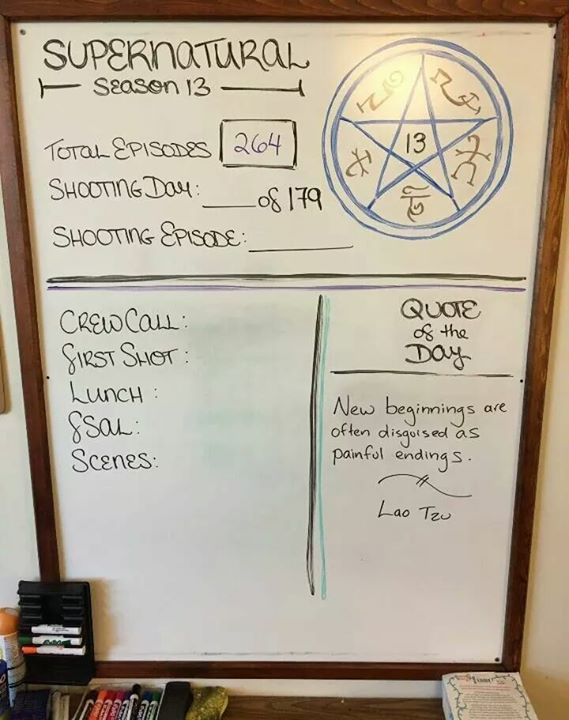 SUPERNATURAL
SEASON 13
TOTAL EPISODES 264
SHOOTING DAY: ____ of 179
SHOOTING EPISODE: ________
13
CREW CALL:
FIRST SHOT:
LUNCH:
FSAL:
SCENES:
QUOTE
of the
DAY
New beginnings are
often disguised as
painful endings.
Lao Tzu